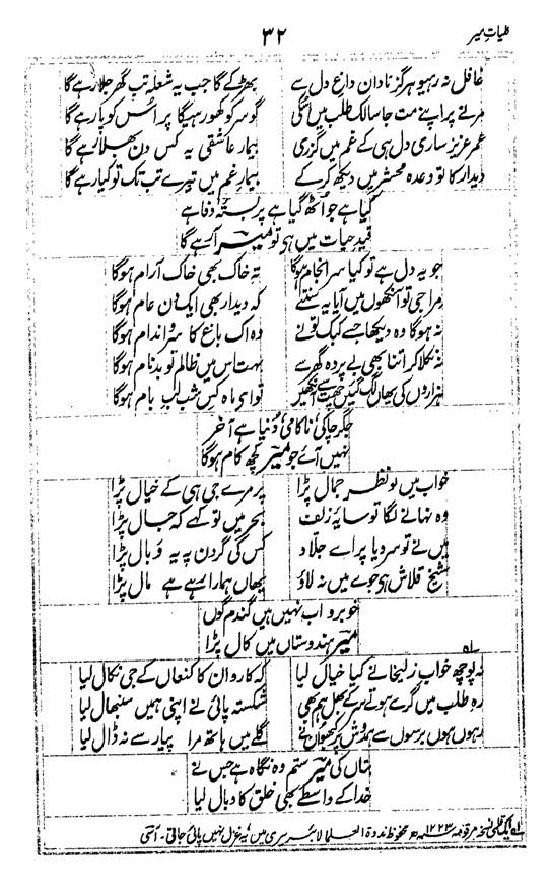 کلیات میر
۳۲
غافل نہ رہیو ہرگز نادان داغ دل سے بھڑکے گا جب یہ شعلہ تب گھر جلا رہے گا
مرنے پر اپنے مت جا سالک طلب میں اسکی گو سر کو کھو رہیگا پر اس کو پا رہے گا
عمر عزیز ساری دل ہی کے غم میں گزری بیمار عاشقی یہ کس دن بھلا رہے گا
دیدار کا تو وعدہ محشر میں دیکھ کر کے بیمار غم میں تیرے تب تک تو کیا رہے گا
کیا ہے جو اٹھ گیا ہے پر بستۂ وفا ہے
قید حیات میں ہی تو میر آ رہے گا
جو یہ دل ہے تو کیا سرانجام ہوگا تہ خاک بھی خاک آرام ہوگا
مرا جی تو آنکھوں میں آیا یہ سنتے کہ دیدار بھی ایک دن عام ہوگا
نہ ہوگا وہ دیکھا جسے کبک تونے وہ اک باغ کا سرو اندام ہوگا
نہ نکلا کر اتنا بھی بے پردہ گھر سے بہت اس میں ظالم تو بدنام ہوگا
ہزاروں کی یھاں لگ گئیں چھت سے آنکھیں تو اے ماہ کس شب لب بام ہوگا
جگر چاکی ناکامی دنیا ہے آخر
نہیں آئے جو میر کچھ کام ہوگا
خواب میں تو نظر جمال پڑا پر مرے جی ہی کے خیال پڑا
وہ نہانے لگا تو سایۂ زلف بحر میں تو کہے کہ جال پڑا
میں نے تو سر دیا پر اے جلاد کس کی گردن پہ یہ وبال پڑا
شیخ قلاش ہی جوے میں نہ لاؤ یھاں ہمارا رہے ہے مال پڑا
خوبرو اب نہیں ہیں گندم گوں
میر ہندوستاں میں کال پڑا
لہ
نہ پوچھ خواب زلیخا نے کیا خیال لیا کہ کاروان کا کنعاں کے جی نکال لیا
رہ طلب میں گرے ہوتے سر کے بھل ہم بھی شکستہ پائی نے اپنی ہمیں سنبھال لیا
رہوں ہوں برسوں سے ہمدوش پر کبھو ان نے گلے میں ہاتھ مرا پیار سے نہ ڈال لیا
بتاں کی میر ستم وہ نگاہ ہے جس نے
خدا کے واسطے بھی خلق کا وبال لیا
لہ ایک قلمی نسخہ مرقومہ محفوظ ندوۃ العلما لائبریری میں یہ غزل نہیں پائی جاتی۔ آسی